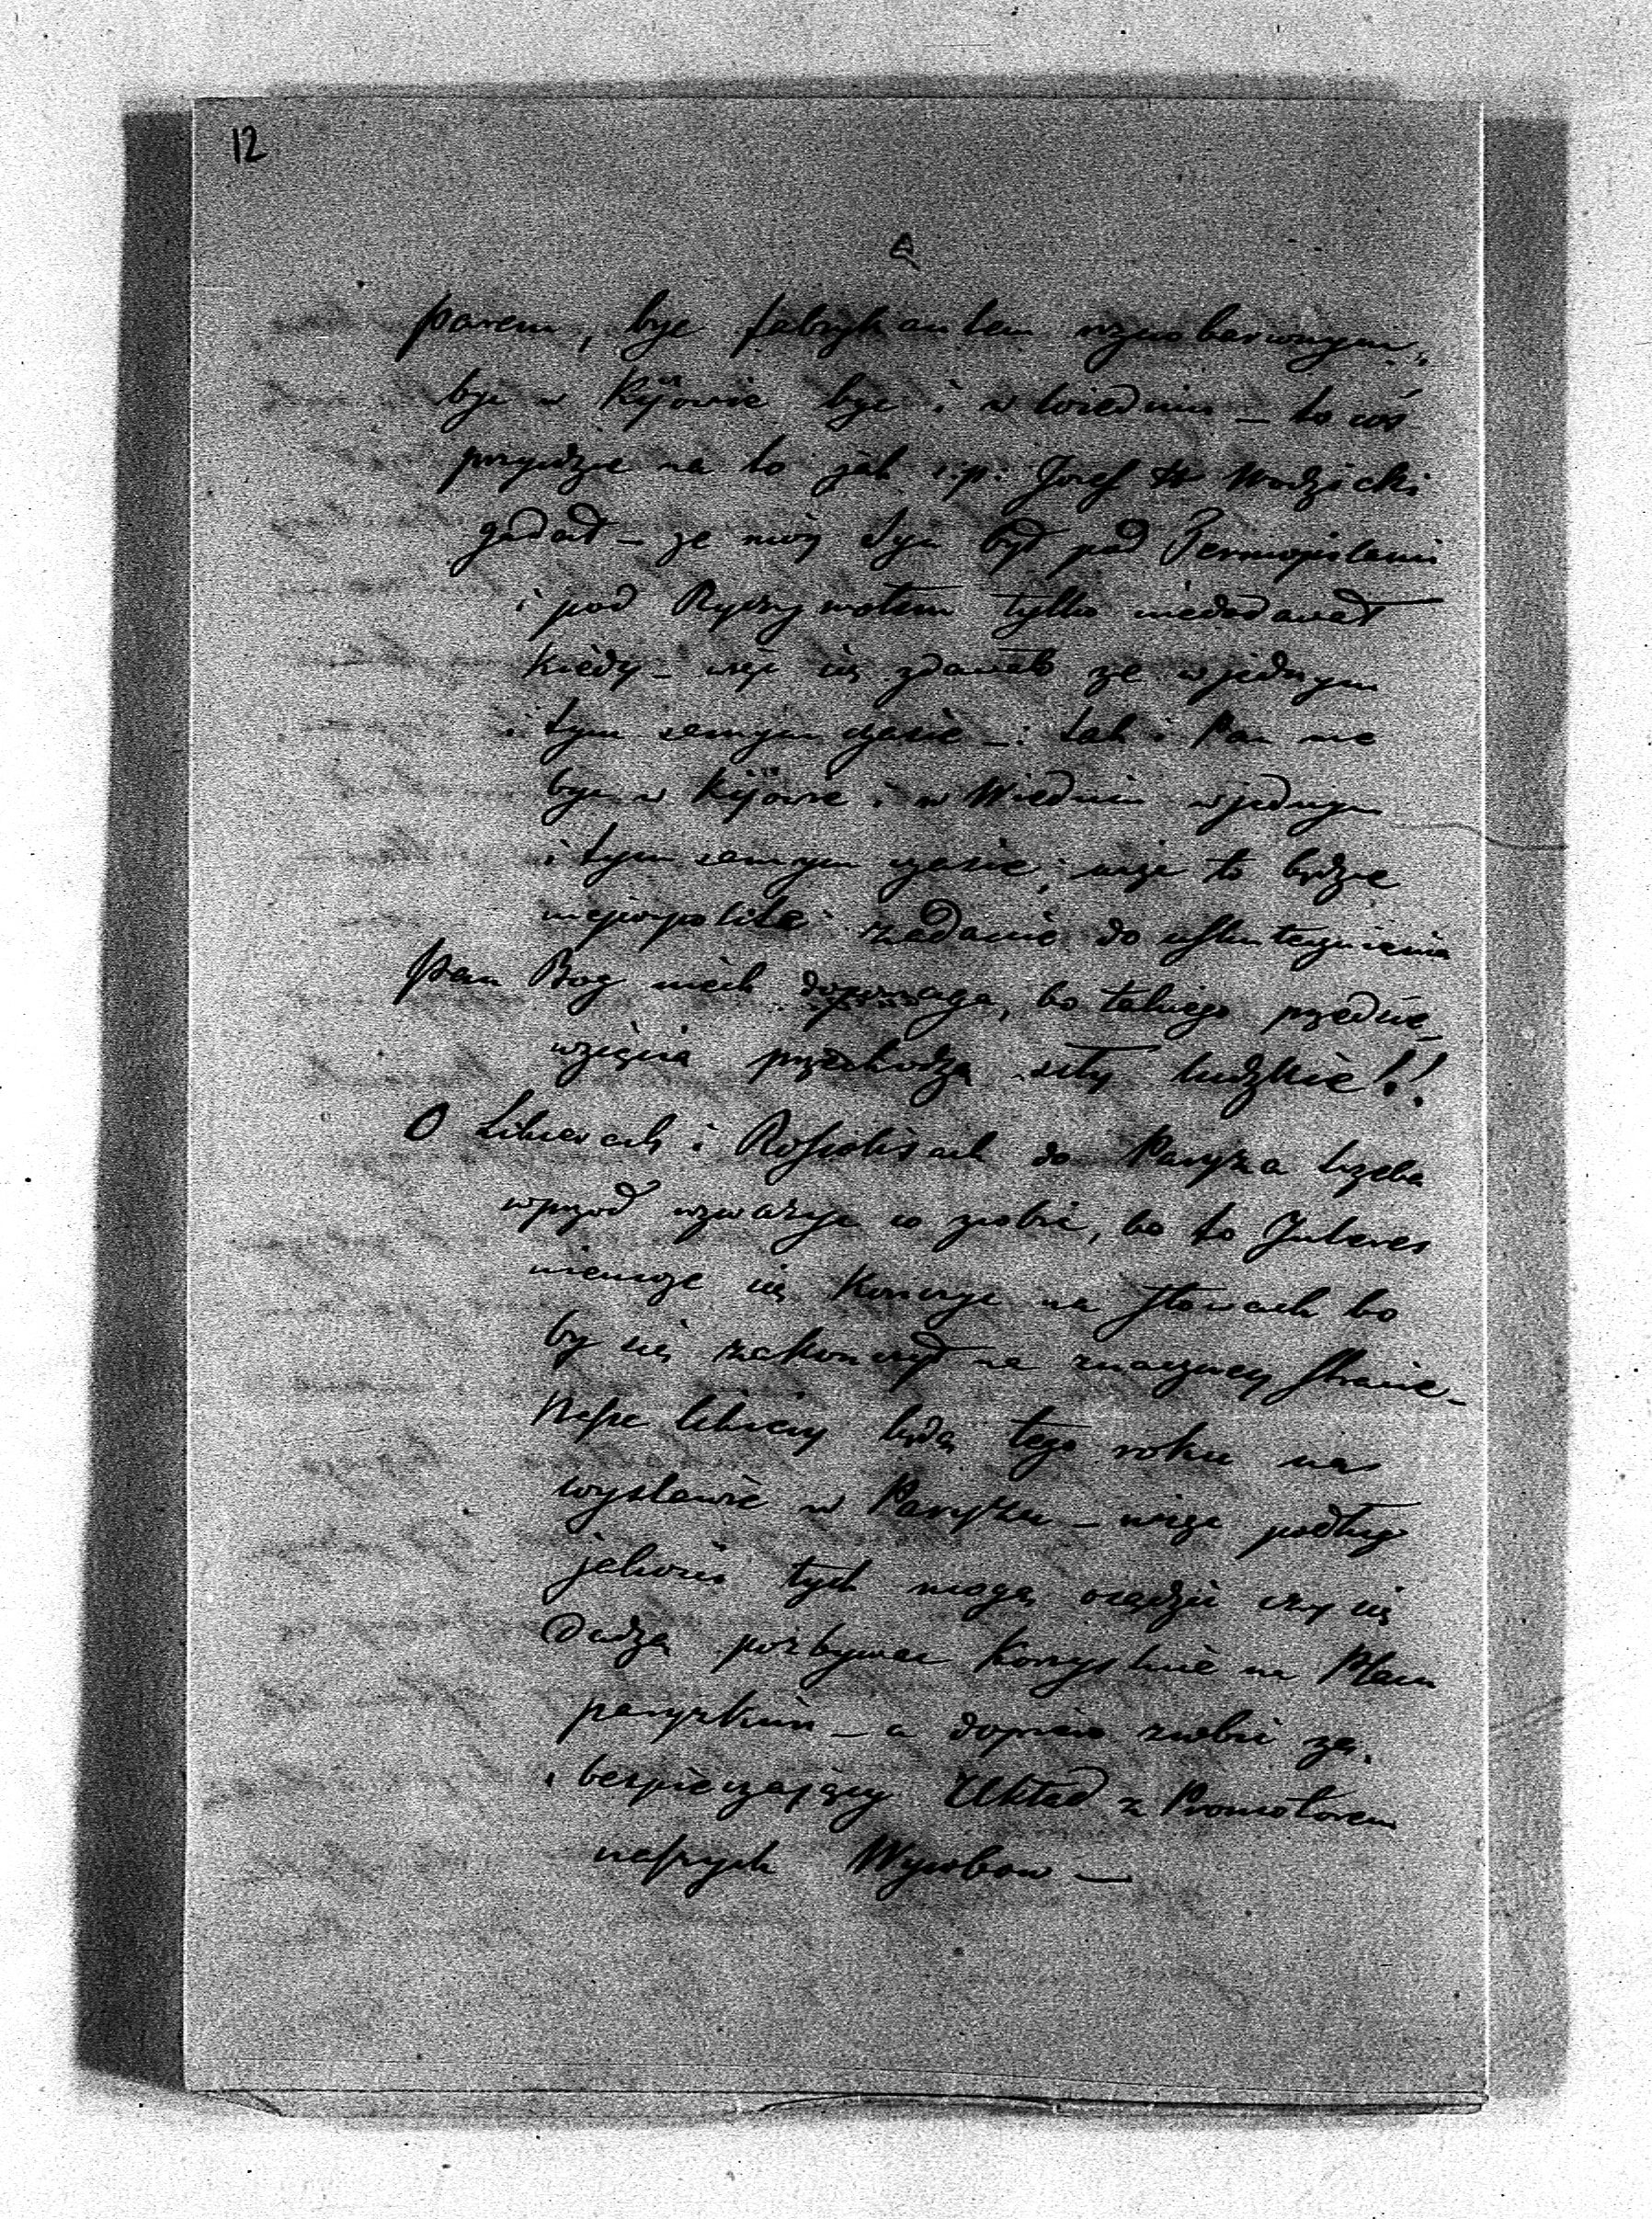 12
Panem, byc fabrykantem roznobarwnym,
byc w Kijowie byc i w Wiedniu – to coś
przydzie na to jak s.p. Josef Hr Wodzicki
gadał – ze moj Syn był pod Termopilami
i pod Rzymotem tylko niedodawał
kiedy – więc się zdawało ze w jednym
i tym samym czasie –: tak i Pan ma
byc w Kijowie i w Wiedniu w jednym
i tym samym czasie; więc to będzie
zadanie do uskutecznienia
Pan Bog niech dopomaga, bo takiego przedsię
wzięcia przechodzą siły ludzkie!!
O Likierach i Rosolisach do Paryza trzeba
wprzod rozwazyc co zrobic, bo to Interes
niemoze się Konczyc na słowach bo
by się zakonczył na znaczney stracie –
Nasze likiery będą tego roku na
wystawie w Paryzu – więc podług
jakosci tych mogą osądzic czy się
Dadzą pozbywac Korzystnie na Placu
paryzkim – a dopiero zrobic za,
bezpieczający Układ z Promotorem
naszych Wyrobow –